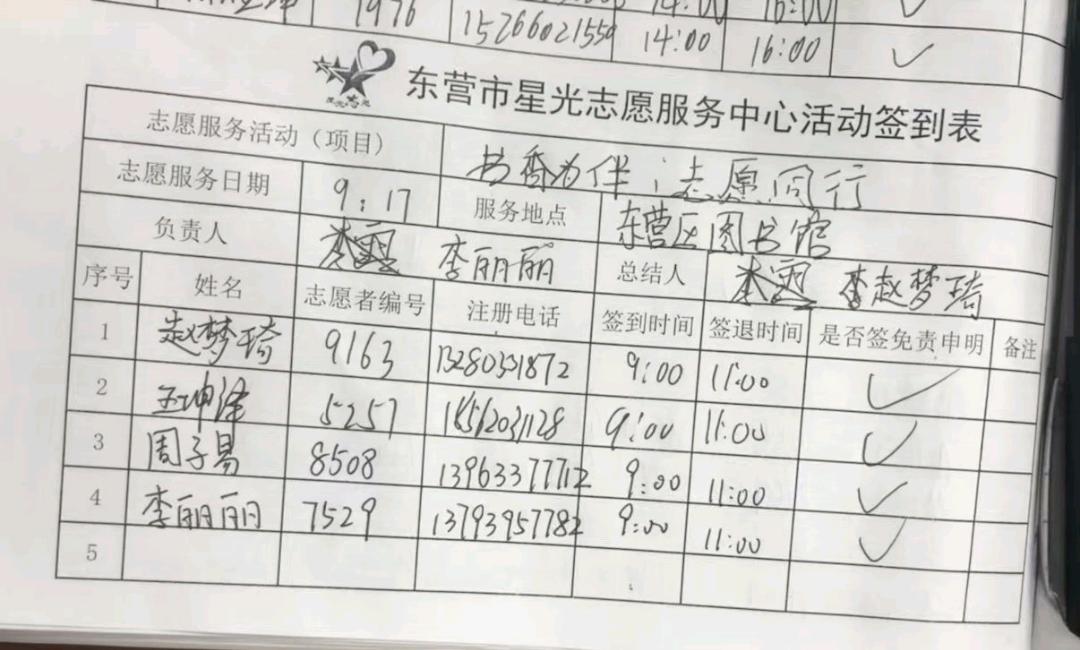 1976 15266021550 14:00 16:00 ✓
星光志愿
东营市星光志愿服务中心活动签到表
志愿服务活动(项目) 书香为伴,志愿同行
志愿服务日期 9.17 服务地点 东营区图书馆
负责人 李丽丽 总结人 李赵梦琦
序号 姓名 志愿者编号 注册电话 签到时间 签退时间 是否签免责申明 备注
1 赵梦琦 9163 13280331872 9:00 11:00 ✓
2 王坤泽 5257 18562031128 9:00 11:00 ✓
3 周子易 8508 13963377712 9:00 11:00 ✓
4 李丽丽 7529 13793957782 9:00 11:00 ✓
5